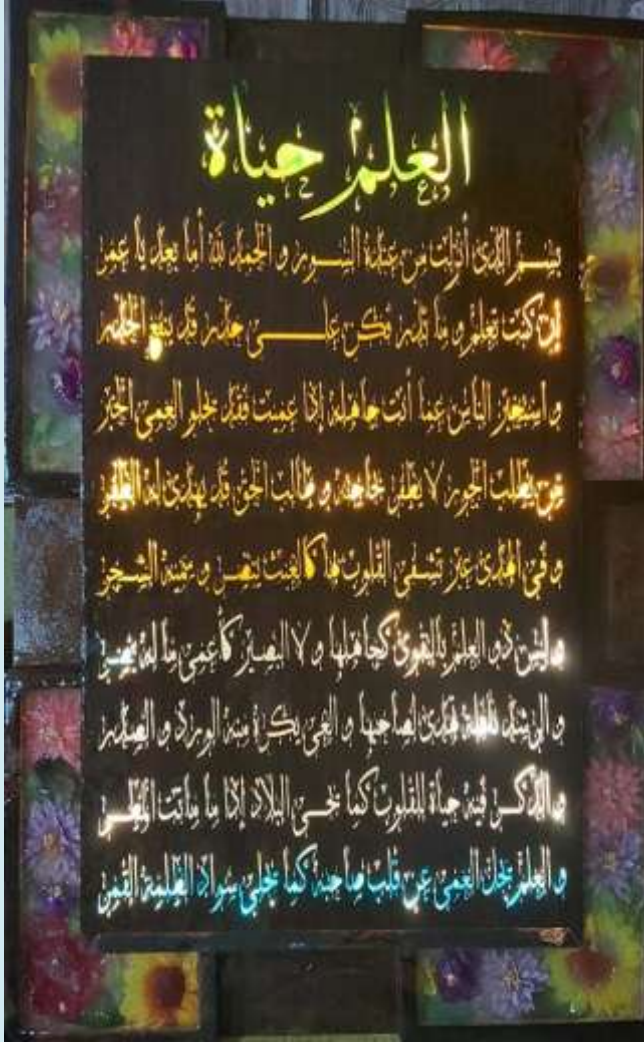 العلم حياة
بسم الذي أنزلت من عنده السور و الحمد لله أما بعد يا عمر
إن كنت تعلم و ما تذر فكن على حذر قد ينفع الحذر
و استخبر الناس عما أنت جاهله إذا عميت فقد يجلو العمى الخبر
من يطلب الجور لا يظفر بحاجته و طالب الحق قد يهدى له الظفر
و في الهدى عبر تشفى القلوب بها كالغيث ينضر و سمية الشجر
و ليس ذو العلم بالتقوى كجاهلها و لا البصير كأعمى ما له بصر
و الرشد نافلة تهدى لصاحبها و الغي يكره منه الورد و الصدر
و الذكر فيه حياة للقلوب كما تحي البلاد إذا ما ماتت المطر
و العلم يجل العمى عن قلب صاحبه كما يجلي سواد الظلمة القمر